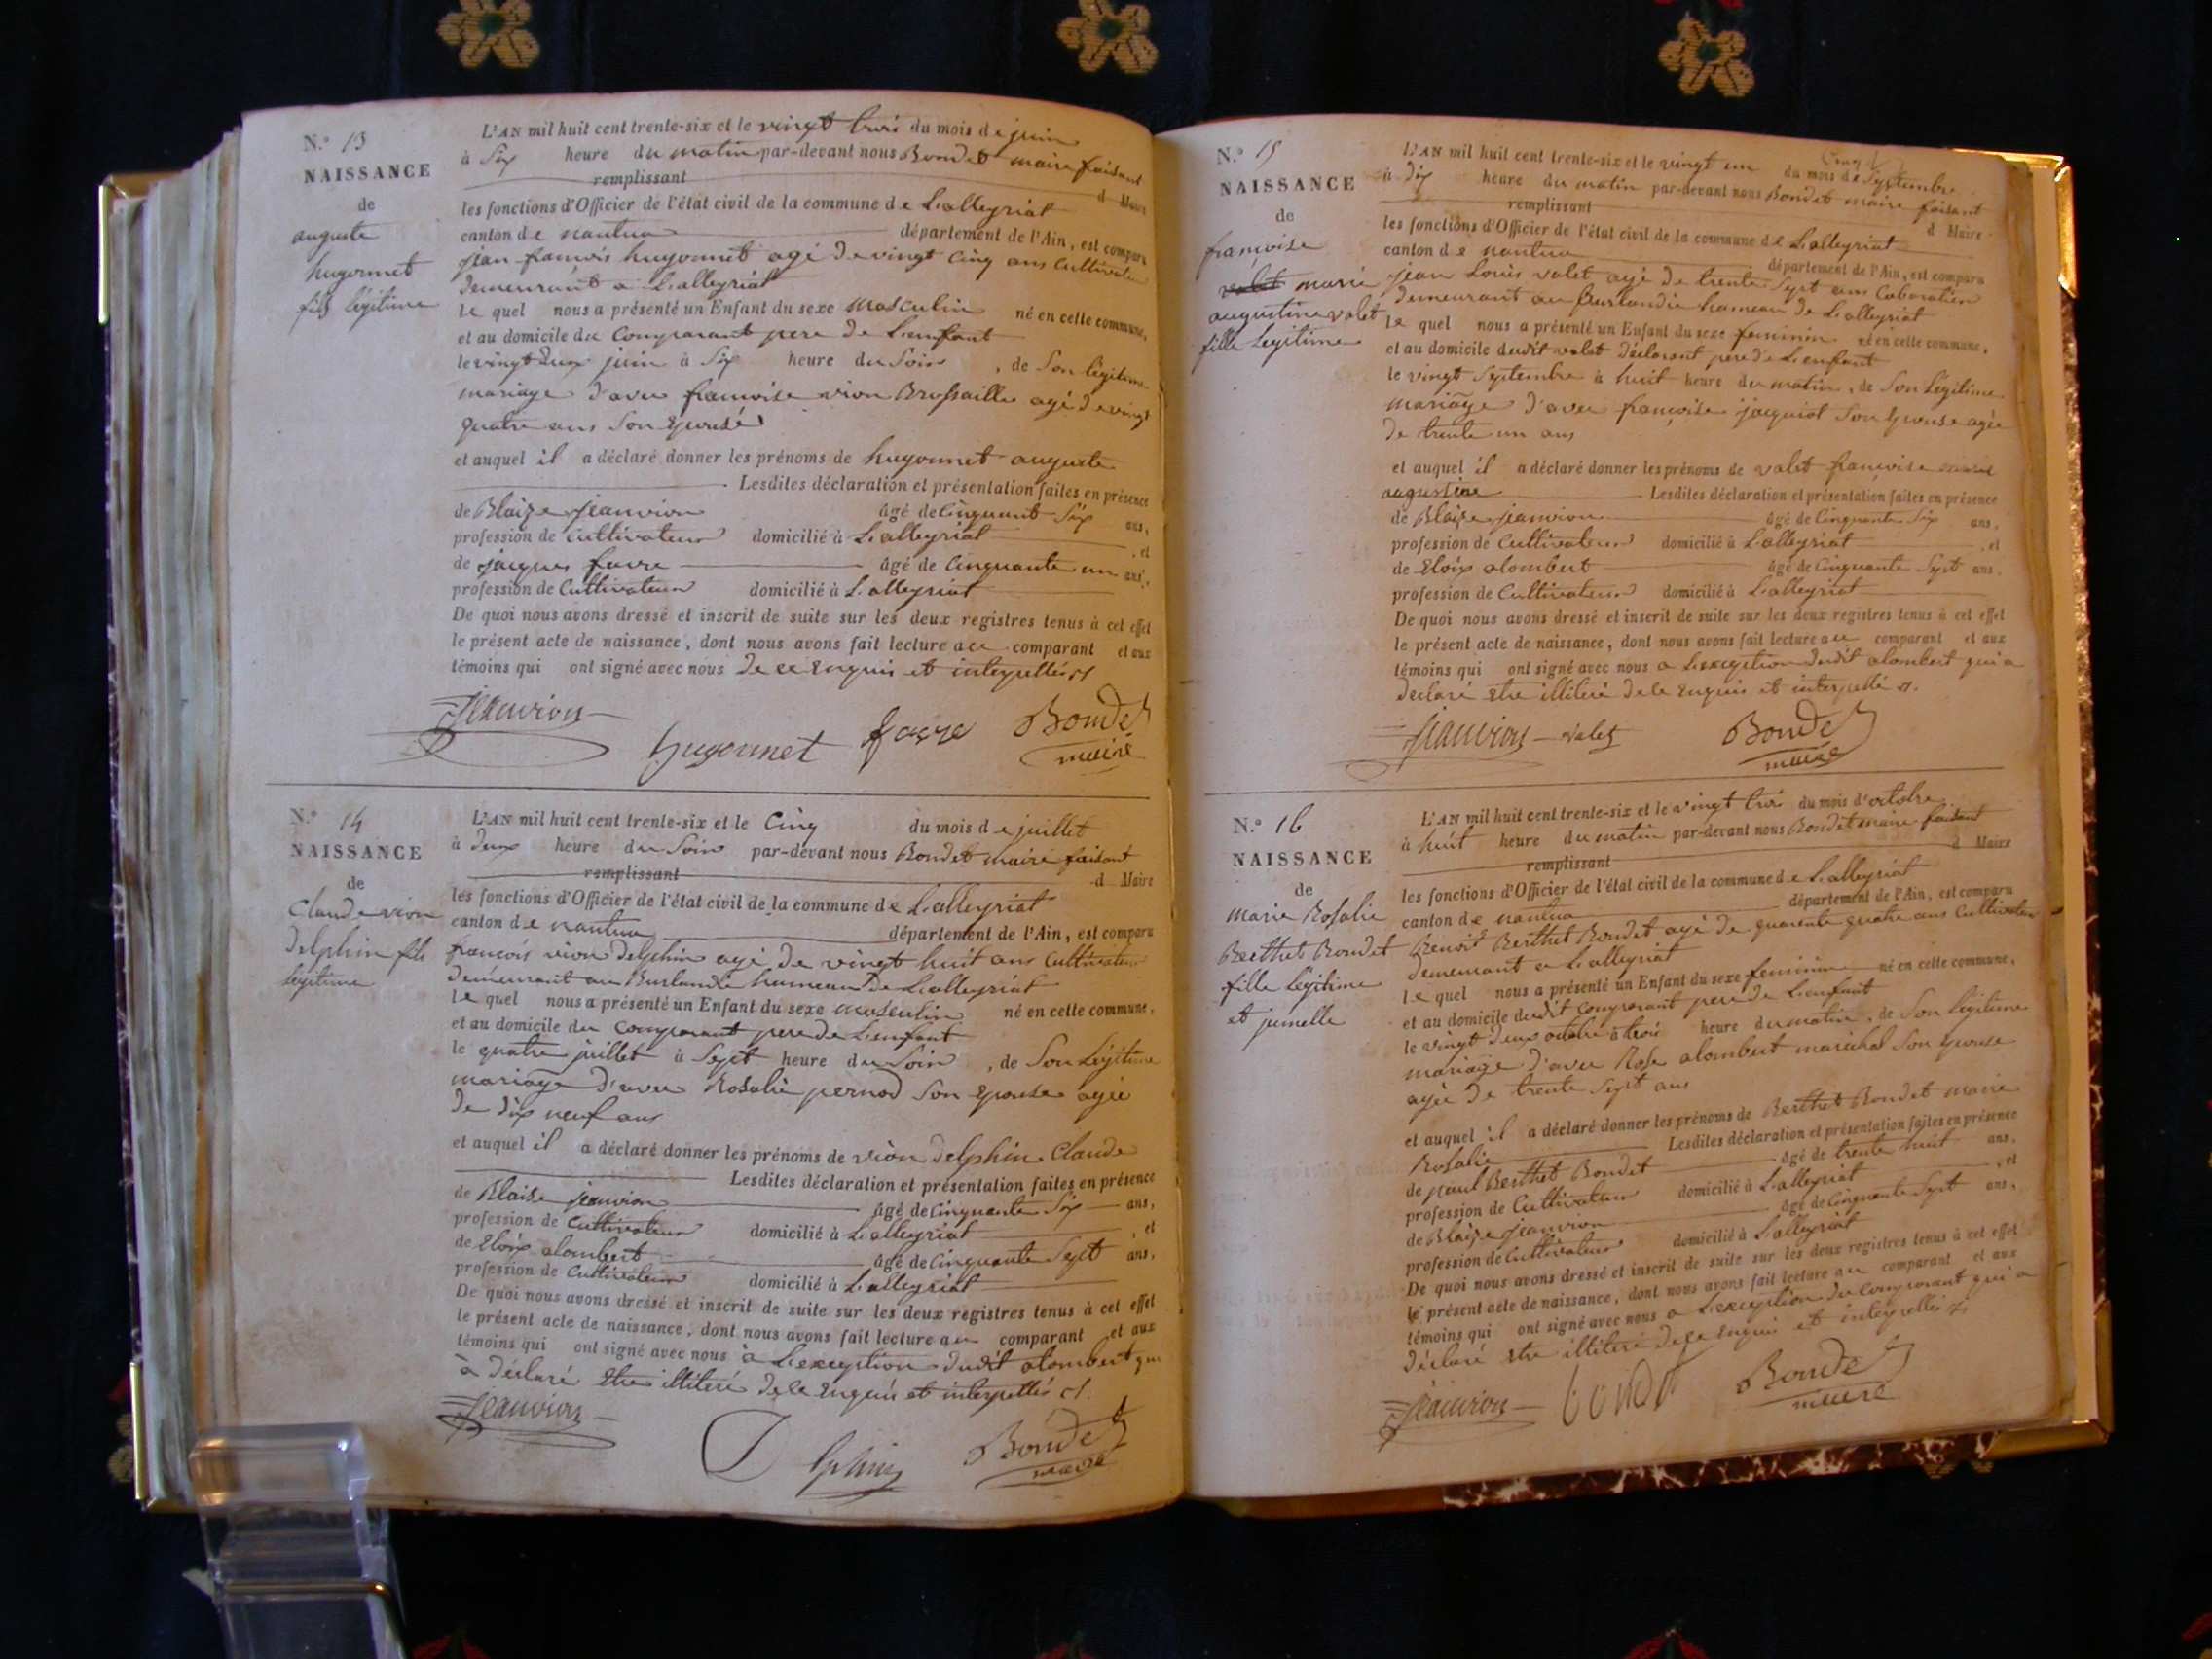 N.° 13
NAISSANCE
de
auguste
hugonnet
fils légitime
L'AN mil huit cent trente-six et le vingt trois du mois de juin
à Six heure du matin par-devant nous Bondet maire faisant
remplissant d Maire
les fonctions d'Officier de l'état civil de la commune de Lalleyriat
canton de nantua département de l'Ain, est comparu
jean francois hugonnet agé de vingt Cinq ans Cultivateur
demeurant a Lalleyriat
le quel nous a présenté un Enfant du sexe masculin né en cette commune,
et au domicile du Comparant pere de Lenfant
le vingt deux juin à Six heure du Soir, de Son légitime
mariage d'avec francoise vion Brossaille agé de vingt
quatre ans Son Epouse
et auquel il a déclaré donner les prénoms de hugonnet auguste
Lesdites déclaration et présentation faites en présence
de Blaize jeanvion âgé de Cinquante Six ans,
profession de Cultivateur domicilié à Lalleyriat, et
de jacques favre âgé de Cinquante un ans,
profession de Cultivateur domicilié à Lalleyriat
De quoi nous avons dressé et inscrit de suite sur les deux registres tenus à cet effet
le présent acte de naissance, dont nous avons fait lecture au comparant et aux
témoins qui ont signé avec nous de ce Enquis et interpellés
Jeanvion hugonnet favre Bondet
maire
N.° 14
NAISSANCE
de
Claude vion
delphin fils
légitime
L'AN mil huit cent trente-six et le Cinq du mois de juillet
à deux heure du Soir par-devant nous Bondet maire faisant
remplissant d Maire
les fonctions d'Officier de l'état civil de la commune de Lalleyriat
canton de nantua département de l'Ain, est comparu
francois vion delphin agé de vingt huit ans Cultivateur
demeurant au Burlandie hameau de Lalleyriat
le quel nous a présenté un Enfant du sexe masculin né en cette commune,
et au domicile du Comparant pere de Lenfant
le quatre juillet à Sept heure du Soir, de Son Légitime
mariage d'avec Rosalie pernod Son Epouse agée
de dix neuf ans
et auquel il a déclaré donner les prénoms de vion delphin Claude
Lesdites déclaration et présentation faites en présence
de Blaise jeanvion âgé de Cinquante Six ans,
profession de Cultivateur domicilié à Lalleyriat, et
de Eloix alombert âgé de Cinquante Sept ans,
profession de Cultivateur domicilié à Lalleyriat
De quoi nous avons dressé et inscrit de suite sur les deux registres tenus à cet effet
le présent acte de naissance, dont nous avons fait lecture au comparant et aux
témoins qui ont signé avec nous à Lexception dudit alombert qui
à déclaré Etre illiteré de ce Enquis et interpellés
Jeanvion Delphin Bondet
maire
N.° 15
NAISSANCE
de
francoise
valet marie
augustine valet
fille Legitime
L'AN mil huit cent trente-six et le vingt un du mois de Septembre
à dix heure du matin par-devant nous Bondet maire faisant
remplissant d Maire
les fonctions d'Officier de l'état civil de la commune de Lalleyriat
canton de nantua département de l'Ain, est comparu
jean Louis valet agé de trente Sept ans
demeurant au Burlandie hameau de Lalleyriat
le quel nous a présenté un Enfant du sexe feminin né en cette commune,
et au domicile dudit valet déclarant pere de Lenfant
le vingt Septembre à huit heure du matin, de Son Légitime
mariage d'avec françoise jacquiot Son Epouse agée
de trente un ans
et auquel il a déclaré donner les prénoms de valet francoise marie
augustine Lesdites déclaration et présentation faites en présence
de Blaize jeanvion âgé de Cinquante Six ans,
profession de Cultivateur domicilié à Lalleyriat, et
de Eloix alombert âgé de Cinquante Sept ans,
profession de Cultivateur domicilié à Lalleyriat
De quoi nous avons dressé et inscrit de suite sur les deux registres tenus à cet effet
le présent acte de naissance, dont nous avons fait lecture au comparant et aux
témoins qui ont signé avec nous a Lexception dudit alombert qui a
déclaré Etre illiteré de ce Enquis et interpellé
Jeanvion valet Bondet
maire
N.° 16
NAISSANCE
de
marie Rosalie
Berthet Bondet
fille Légitime
et jumelle
L'AN mil huit cent trente-six et le vingt trois du mois d'octobre
à huit heure du matin par-devant nous Bondet maire faisant
remplissant d Maire
les fonctions d'Officier de l'état civil de la commune de Lalleyriat
canton de nantua département de l'Ain, est comparu
Benoit Berthet Bondet agé de quarente quatre ans Cultivateur
demeurant a Lalleyriat
le quel nous a présenté un Enfant du sexe feminin né en cette commune,
et au domicile dudit Comparant pere de Lenfant
le vingt deux octobre à trois heure du matin, de Son Légitime
mariage d'avec Rose alombert maréchal Son Epouse
agée de trente Sept ans
et auquel il a déclaré donner les prénoms de Berthet Bondet marie
Rosalie Lesdites déclaration et présentation faites en présence
de paul Berthet Bondet âgé de trente huit ans,
profession de Cultivateur domicilié à Lalleyriat, et
de Blaize jeanvion âgé de Cinquante Sept ans,
profession de Cultivateur domicilié à Lalleyriat
De quoi nous avons dressé et inscrit de suite sur les deux registres tenus à cet effet
le présent acte de naissance, dont nous avons fait lecture au comparant et aux
témoins qui ont signé avec nous a Lexception du Comparant qui a
déclaré Etre illiteré de ce Enquis et interpellés
Jeanvion Bondet
maire